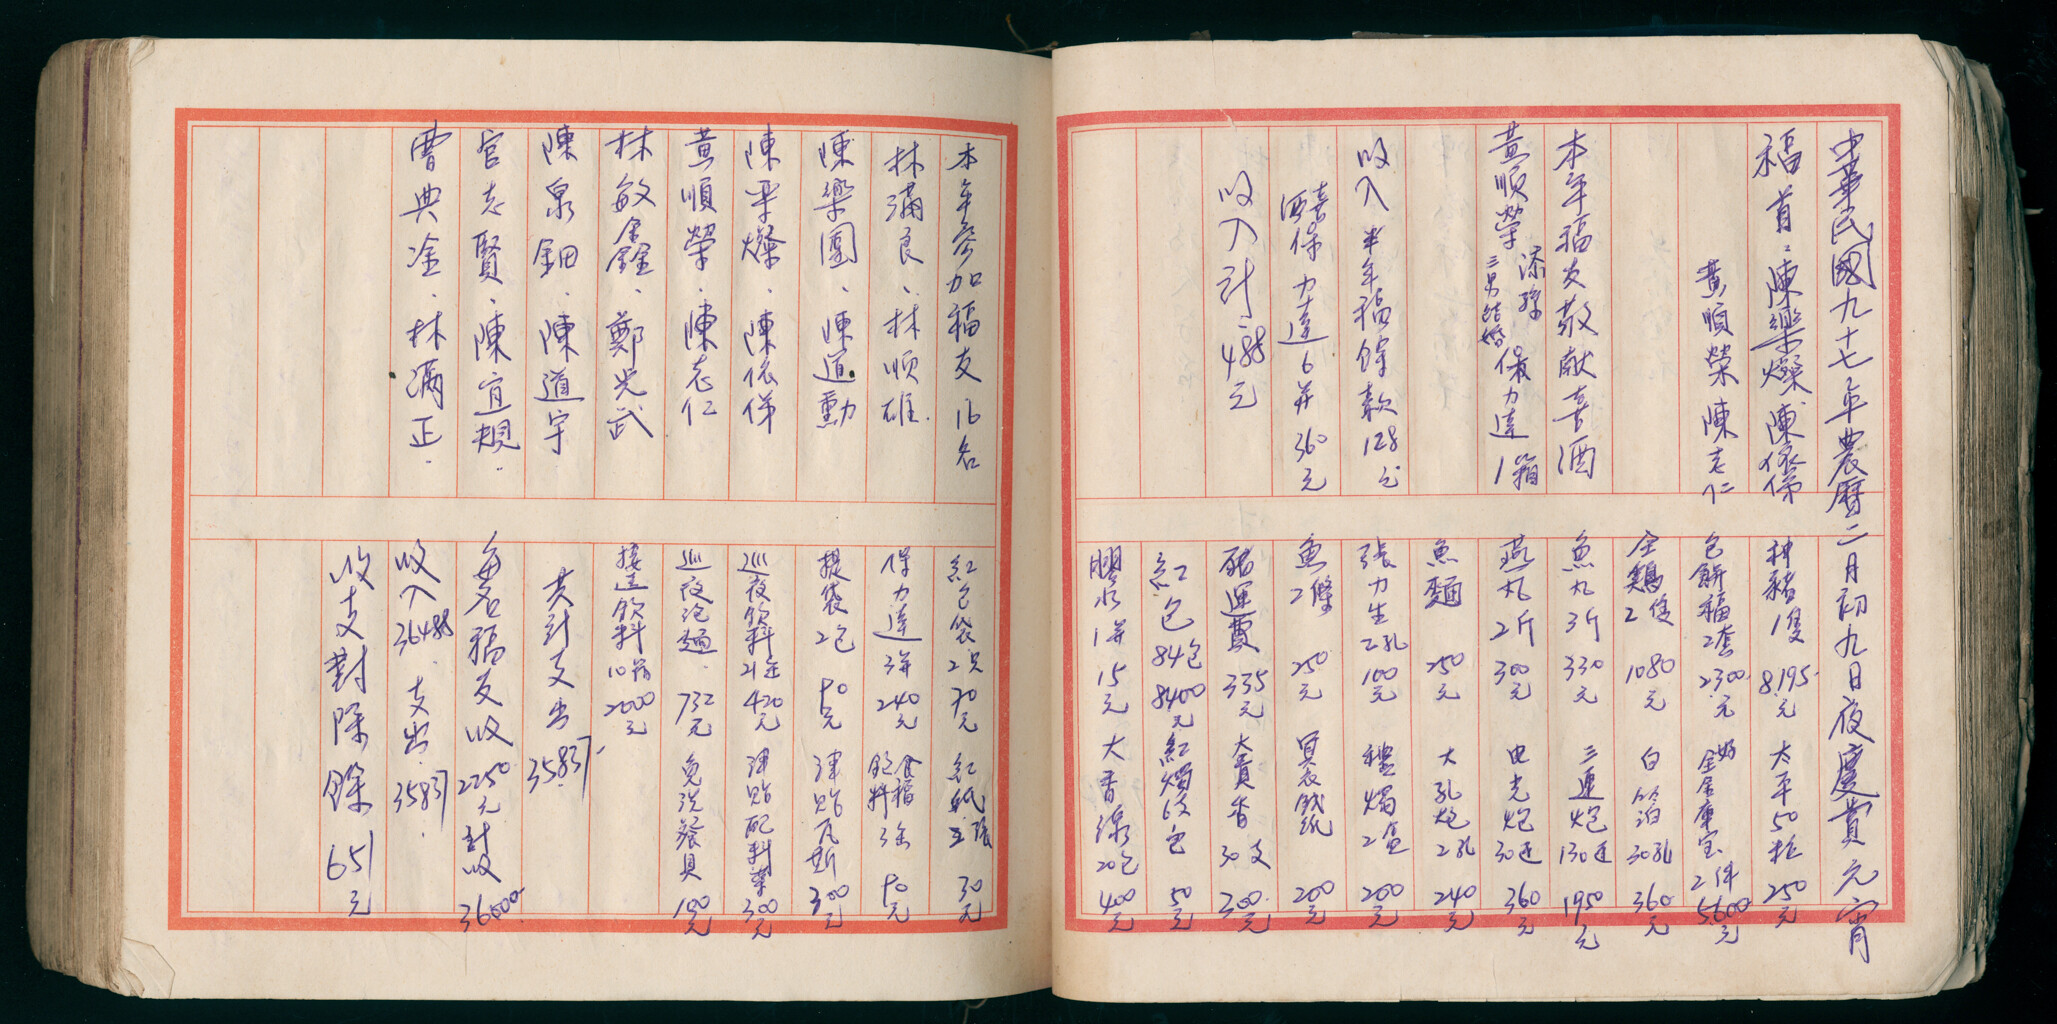 中華民國九十七年農曆二月初九日夜慶賞元宵
福首:陳樂燦 陳依俤
黃順榮 陳志仁
本年福友敬獻喜酒
黃順榮 添孫 三男結婚 保力達1箱
收入半年福餘款128元
喜酒保力達6瓶360元
收入計:488元
神豬1隻 8195元 太平50粒 250元
包餅福2套 2300元 金庫宝2件 5600元
全鷄2隻 1080元 白 30孔 360元
魚丸3斤 330元 三連炮130連 1950元
燕丸2斤 300元 电光炮30连 360元
魚麵 250元 大孔炮2孔 240元
張力生2孔 100元 禮燭2盒 200元
魚2條 250元 冥衣錢紙 200元
豬運費 335元 大貢香30支 300元
紅包84包 8400元 紅燭 50元
膠水1瓶 15元 大香線20包 400元
本年参加福友16名
林滿良、林順雄.
陳樂團、陳道勳
陳平燦、陳依俤
黃順榮、陳志仁
林敏鑫、鄭光武
陳泉鈿、陳道宇
官志賢、陳宜規.
曹典淦、林滿正.
紅包袋2只 70元 紅紙 張 30元
保力達3瓶 240元 食福飲料 90元
提袋2包 90元 津貼瓦斯 300元
巡夜飲料21 420元 津貼配料菜 300元
巡夜泡麵. 732元 免洗餐具 100元
接送飲料10箱 2000元
共計支出 35837.
每名福友收2250元計收36000
收入36488. 支出.35837.
收支對除餘651元